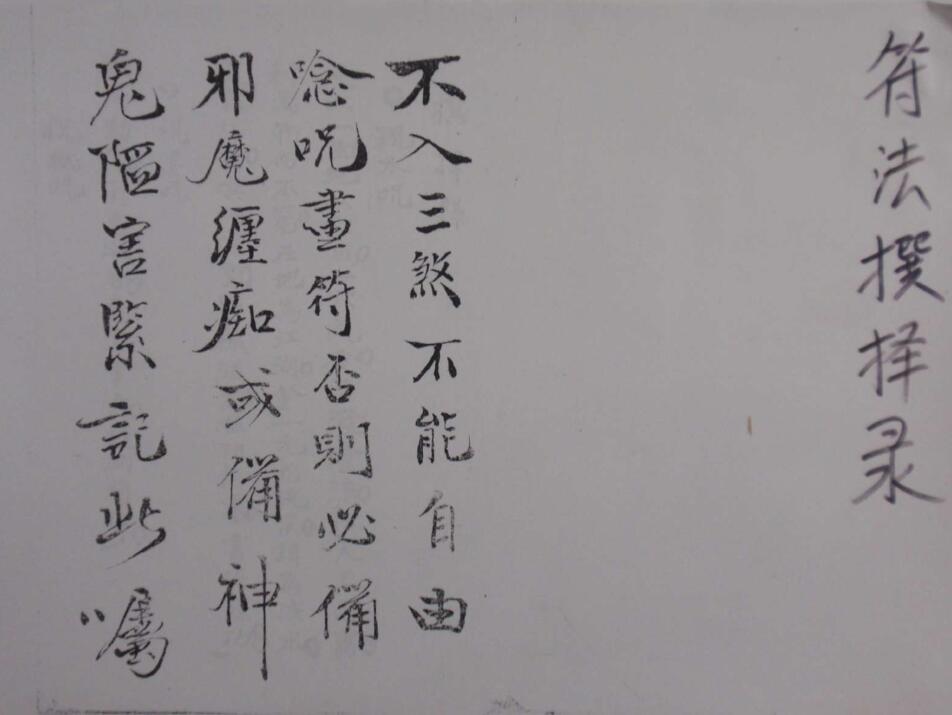 符法撰择录
不入三煞不能自由
唸咒畫符否則必備
邪魔纏痴或備神
鬼陋害緊記此囑